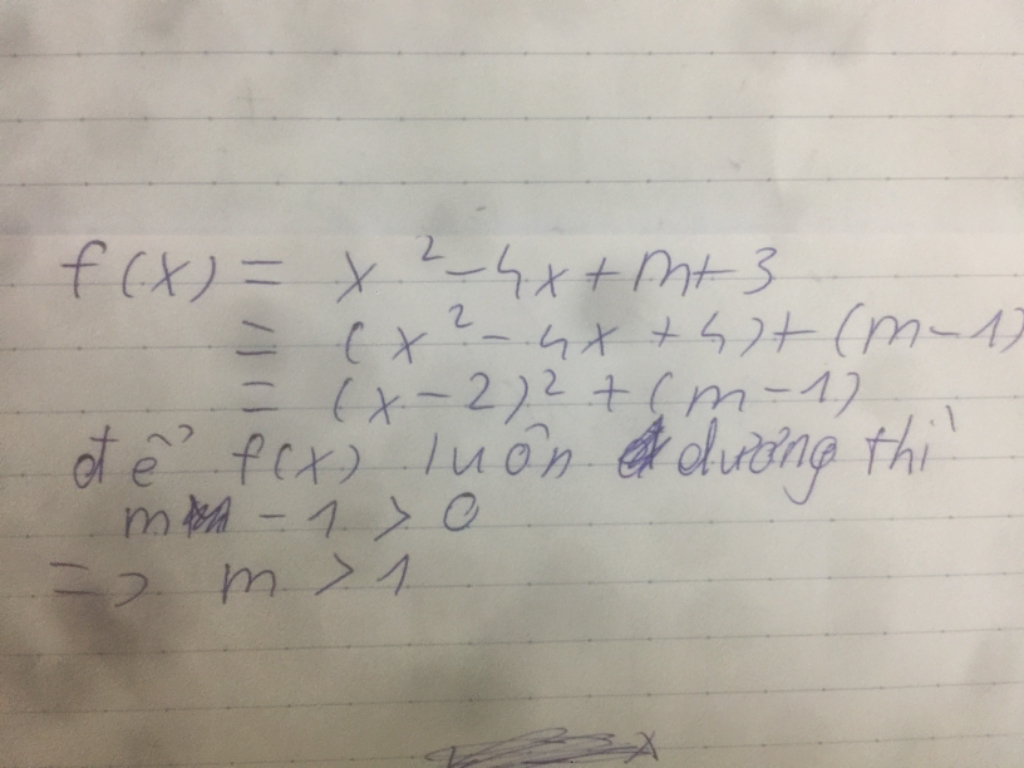 f(x) = x² - 4x + m + 3
= (x² - 4x + 4) + (m - 1)
= (x - 2)² + (m - 1)
để f(x) luôn dương thì
m - 1 > 0
=> m > 1